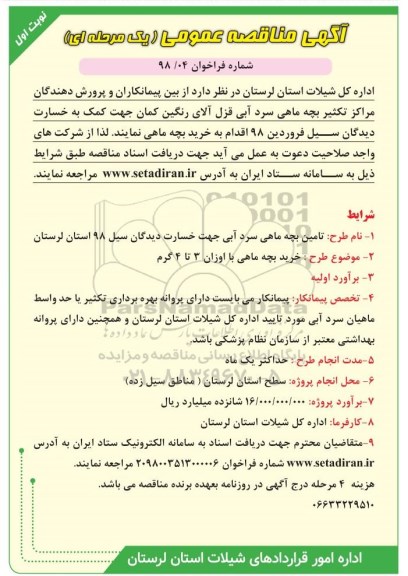 نوبت اول
آگهی مناقصه عمومی ( یک مرحله ای)
شماره فراخوان ۰۴/ ۹۸
اداره کل شیلات استان لرستان در نظر دارد از بین پیمانکاران و پرورش دهندگان
مراکز تکثیر بچه ماهی سرد آبی قزل آلای رنگین کمان جهت کمک به خسارت
دیدگان سیل فروردین ۹۸ اقدام به خرید بچه ماهی نمایند. لذا از شرکت های
واجد صلاحیت دعوت به عمل می آید جهت دریافت اسناد مناقصه طبق شرایط
ذیل به سامانه ستاد ایران به آدرس www.setadiran.ir مراجعه نمایند.
شرایط
۱- نام طرح: تامین بچه ماهی سرد آبی جهت خسارت دیدگان سیل ۹۸ استان لرستان
۲- موضوع طرح : خرید بچه ماهی با اوزان ۳ تا ۴ گرم
۳- برآورد اولیه
۴- تخصص پیمانکار: پیمانکار می بایست دارای پروانه بهره برداری تکثیر یا حد واسط
ماهیان سرد آبی مورد تایید اداره کل شیلات استان لرستان و همچنین دارای پروانه
بهداشتی معتبر از سازمان نظام پزشکی باشد.
۵-مدت انجام طرح : حداکثر یک ماه
۶- محل انجام پروژه: سطح استان لرستان ( مناطق سیل زده)
۷-برآورد پروژه: ۱۶/۰۰۰/۰۰۰/۰۰۰ شانزده میلیارد ریال
۸-کارفرما: اداره کل شیلات استان لرستان
۹-متقاضیان محترم جهت دریافت اسناد به سامانه الکترونیک ستاد ایران به آدرس
www.setadiran.ir شماره فراخوان ۲۰۹۸۰۰۳۵۱۳۰۰۰۰۰۶ مراجعه نمایند.
هزینه ۴ مرحله درج آگهی در روزنامه بعهده برنده مناقصه می باشد.
۰۶۶۳۳۲۲۹۵۱۰
اداره امور قراردادهای شیلات استان لرستان
ParsNamadData
پایگاه اطلاع رسانی مناقصه و مزایده